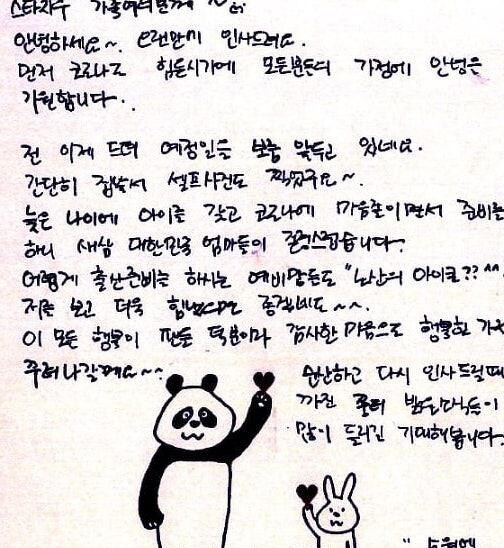 스타지우 가족여러분께
안녕하세요~. 오랜만에 인사드려요.
먼저 코로나로 힘든시기에 모든분들의 가정에 안녕을
기원합니다..
전 이제 드뎌 예정일을 보름 앞두고 있네요.
간단히 집에서 셀프사진도 찍었구요~.
늦은 나이에 아이를 갖고 코로나에 마음졸이면서 준비를
하니 새삼 대한민국 엄마들이 존경스럽습니다.
어렵게 출산준비를 하시는 예비맘들도 "노산의 아이콘?? ^^
저를 보고 더욱 힘 좋겠네요~~.
이 모든 행복이 팬들 덕분이라 감사한 마음으로 행복한 가정
꾸려나갈께요~~
순산하고 다시 인사드릴때
까진 코로나
많이 들리길 기대해봅니다.